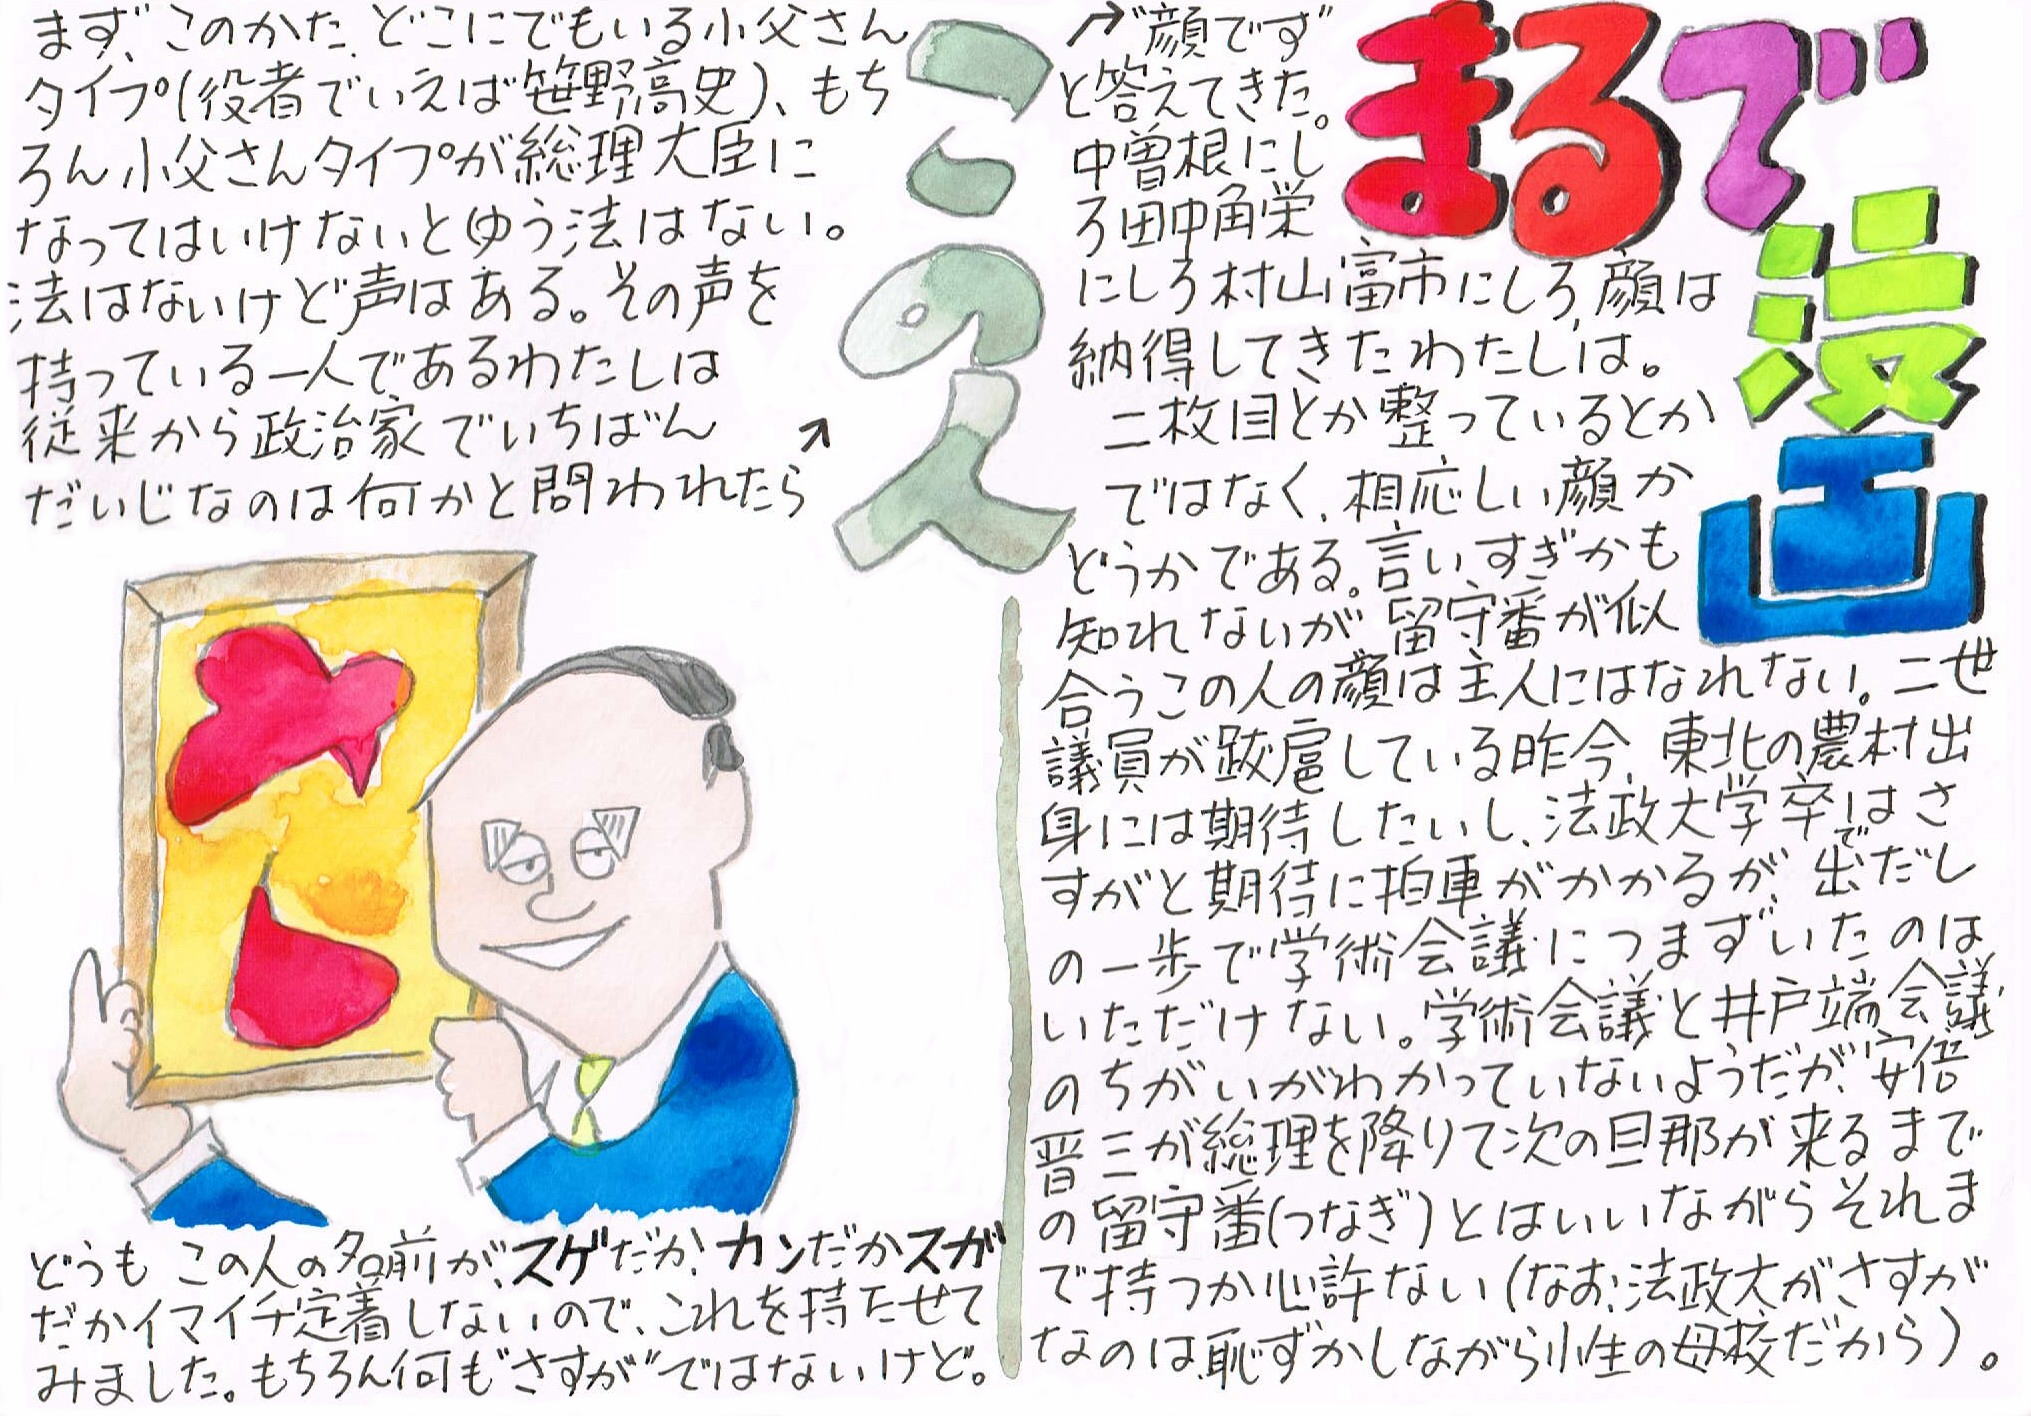 まるで
漫画
この人
まず、このかた、どこにでもいる小父さん
タイプ(役者でいえば笹野高史)、もち
ろん小父さんタイプが総理大臣に
なってはいけないとゆう法はない。
法はないけど声はある。その声を
持っている一人であるわたしは
従来から政治家でいちばん
だいじなのは何かと問われたら↗
↗“顔です”
と答えてきた。
中曽根にし
ろ田中角栄
にしろ村山富市にしろ、顔は
納得してきたわたしは。
二枚目とか整っているとか
ではなく、相応しい顔か
どうかである。言いすぎかも
知れないが留守番が似
合うこの人の顔は主人にはなれない。二世
議員が跋扈している昨今、東北の農村出
身には期待したいし、法政大学卒はさ
すがと期待に拍車がかかるが、出(で)だし
の一歩で学術会議につまずいたのは
いただけない。学術会議と井戸端会議
のちがいがわかっていないようだが、安倍
晋三が総理を降りて次の旦那が来るまで
の留守番(つなぎ)とはいいながらそれま
で持つか心許ない(なお、法政大がさすが
なのは、恥ずかしながら小生の母校だから)。
どうもこの人の名前が、スゲだか、カンだかスガ
だかイマイチ定着しないので、これを持たせて
みました。もちろん何も“さすが”ではないけど。